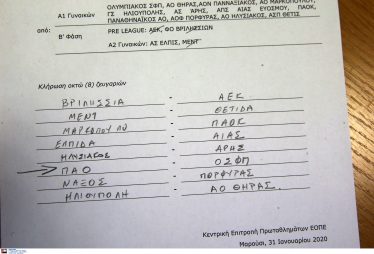 Α1 Γυναικών
ΟΛΥΜΠΙΑΚΟΣ ΣΦΠ, ΑΟ ΘΗΡΑΣ, ΑΟΝ ΠΑΝΝΑΞΙΑΚΟΣ, ΑΟ ΜΑΡΚΟΠΟΥΛΟΥ,
ΓΣ ΗΛΙΟΥΠΟΛΗΣ, ΑΣ ΆΡΗΣ, ΑΠΣ ΑΙΑΣ ΕΥΟΣΜΟΥ, ΠΑΟΚ,
ΠΑΝΑΘΗΝΑΪΚΟΣ ΑΟ, ΑΟΦ ΠΟΡΦΥΡΑΣ, ΑΟ ΗΛΥΣΙΑΚΟΣ, ΑΣΠ ΘΕΤΙΣ
από:
Β' Φάση
PRE LEAGUE: ΑΕΚ, ΦΟ ΒΡΙΛΗΣΣΙΩΝ
Α2 Γυναικών: ΑΣ ΕΛΠΙΣ, ΜΕΝΤ
Κλήρωση οκτώ (8) ζευγαριών
ΒΡΙΛΗΣΣΙΑ - ΑΕΚ
ΜΕΝΤ - ΘΕΤΙΔΑ
ΜΑΡΚΟΠΟΥΛΟ - ΠΑΟΚ
ΕΛΠΙΔΑ - ΑΙΑΣ
ΗΛΥΣΙΑΚΟΣ - ΑΡΗΣ
ΠΑΟ - ΟΣΦΠ
ΝΑΞΟΣ - ΠΟΡΦΥΡΑΣ
ΗΛΙΟΥΠΟΛΗ - ΑΟ ΘΗΡΑΣ
Κεντρική Επιτροπή Πρωταθλημάτων ΕΟΠΕ
Μαρούσι, 31 Ιανουαρίου 2020